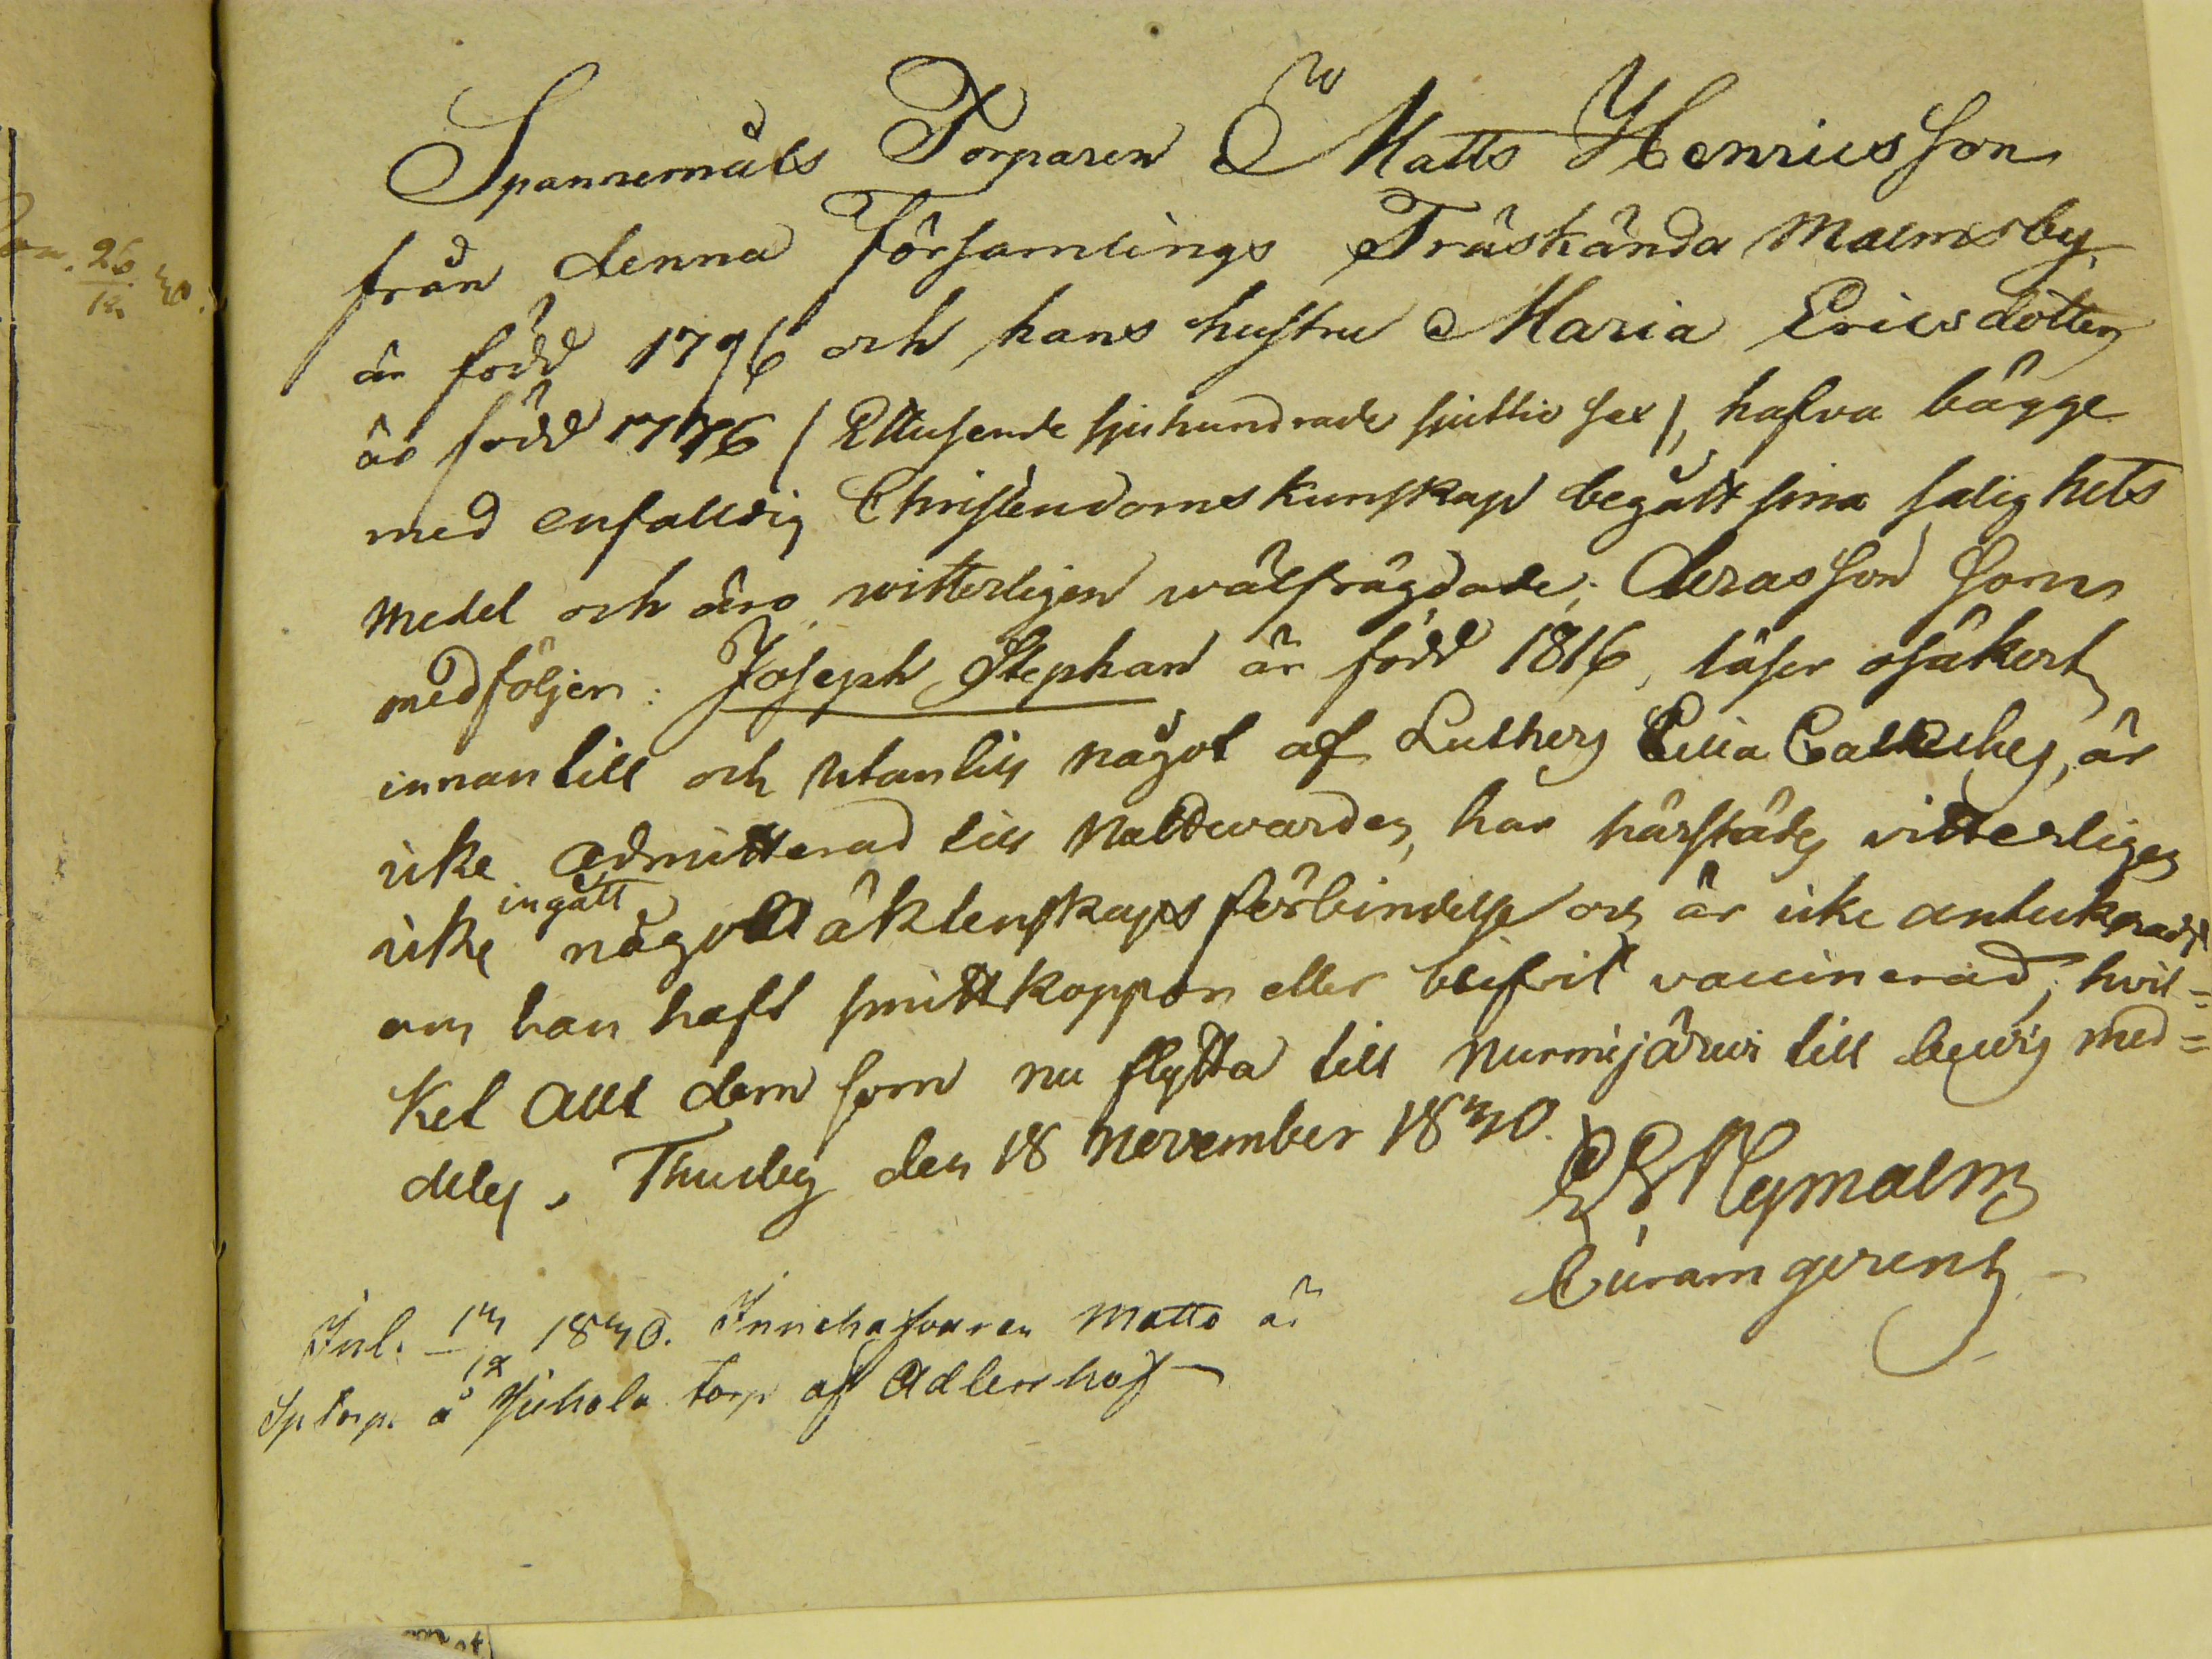 Spannemåls Torparen Matts Henricsson
från denna Församlings Träskända Malmsby
är född 1796 och hans hustru Maria Ericsdotter
är född 1776 (Ettusende sjuhundrade sjuttio sex), hafva bägge
med enfalldig Christendomskunskap begått sina salighets
medel och äro witterligen wälfrägdade; deras son som
medföljer: Joseph Stephan är född 1816, läser osäkert
innantill och utantill något af Luthers Lilla Cateches, är
icke admitterad till Nattvarden, har härstädes vitterligen
icke ingått något äktenskaps förbindelse och är icke antecknadt
om han haft smittkoppor eller blifvit vaccinerad; hvil=
ket allt dem som nu flytta till Nurmijärwi till bewis med=
delas. Thusby den 18 November 1830.
Nymalm
Curam gerens
Inl. 1830. Innehafvaren Matts är
Sp torp. å Juhola torp af Adlerhof
26